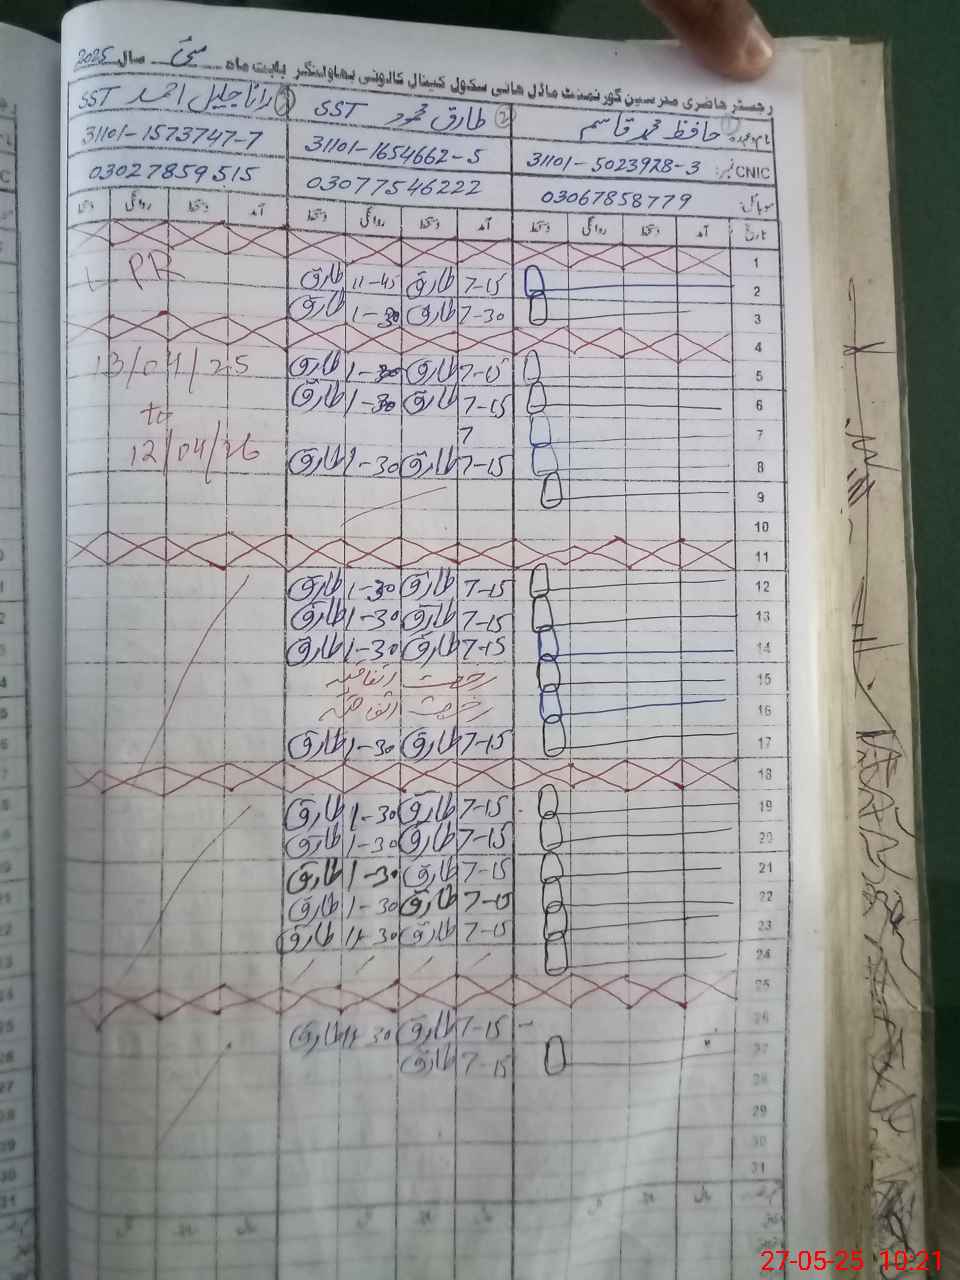 رجسٹر حاضری مدرسین گورنمنٹ ماڈل ہائی سکول کینال کالونی بہاولنگر بابت ماہ مئی سال 2025
نام وعہدہ ① حافظ محمد قاسم ② طارق محمود SST ③ رانا جلیل احمد SST
CNIC نمبر: 31101-5023928-3 31101-1654662-5 31101-1573747-7
موبائل: 03067858779 03077546222 03027859515
تاریخ آمد دستخط روانگی دستخط آمد دستخط روانگی دستخط آمد دستخط روانگی دستخط
1
2 7-15 طارق 11-45 طارق L PR
3 7-30 طارق 1-30 طارق
4
5 طارق 1-30 طارق 13/04/25
6 7-15 طارق 1-30 طارق to
7 7
8 7-15 طارق 1-30 طارق 12/04/26
9
10
11
12 7-15 طارق 1-30 طارق
13 7-15 طارق 1-30 طارق
14 7-15 طارق 1-30 طارق
15 رخصت اتفاقیہ
16 رخصت اتفاقیہ
17 7-15 طارق 1-30 طارق
18
19 7-15 طارق 1-30 طارق
20 7-15 طارق 1-30 طارق
21 7-15 طارق 1-30 طارق
22 7-15 طارق 1-30 طارق
23 7-15 طارق 11-30 طارق
24
25
26 7-15 طارق 11-30 طارق
27 7-15 طارق
28
29
30
31
27-05-25 10:21